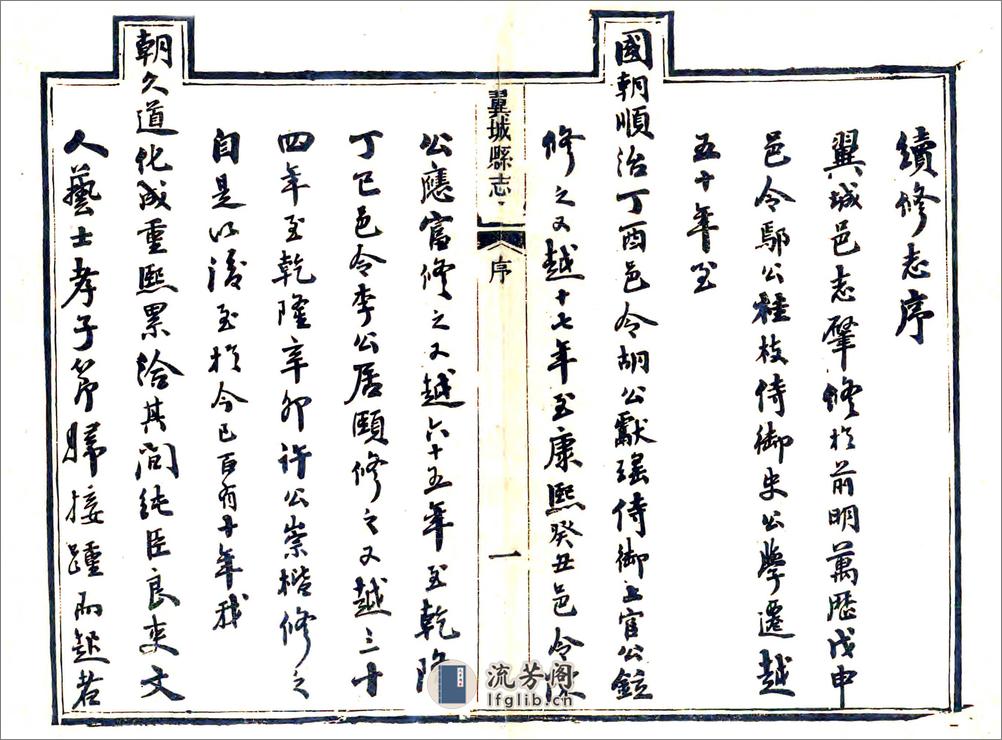 續修志序
翼城邑志肇修於前明萬歷戊申
邑令鄢公桂枝侍御史公學遷越
五十年至
國朝順治丁酉邑令胡公獻瑶侍御上官公鉝
修之又越十七年至康熙癸丑邑令
公應富修之又越六十五年至乾隆
丁巳邑令李公居頤修之又越三十
四年至乾隆辛卯許公崇楷修之
自是以後至於今已百有十年我
朝久道化成重熙累洽其間純臣良吏文
人藝士孝子節婦接踵而起者
翼城縣志
序
一
流芳阁
lfglib.cn